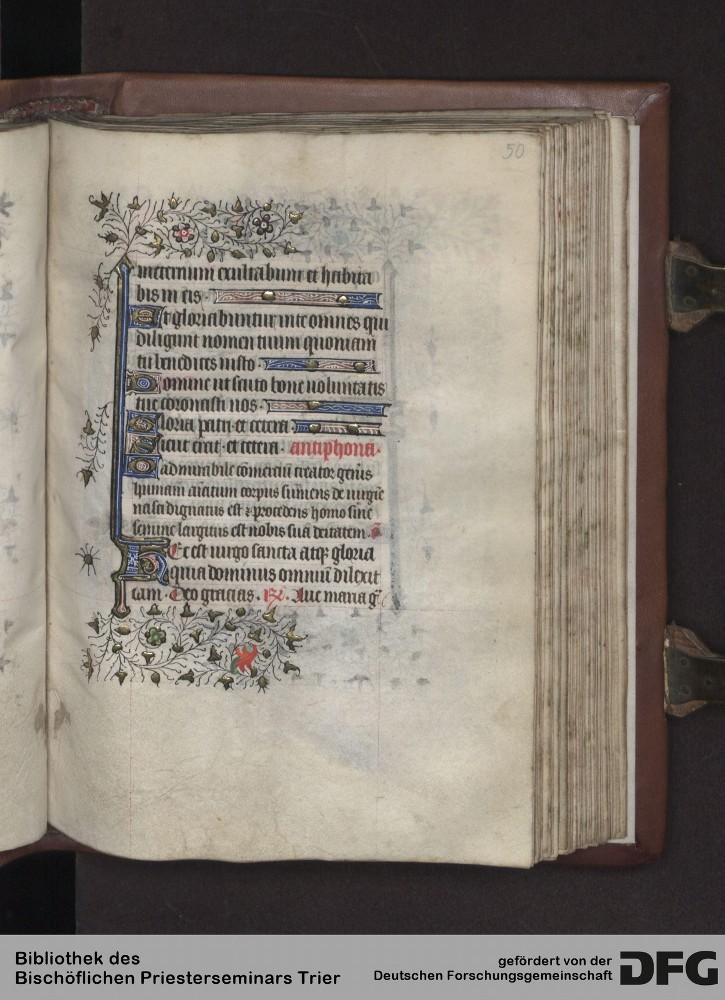 50
ineternum exultabunt et habita
bis in eis
Et gloriabuntur in te omnes qui
diligunt nomen tuum quoniam
tu benedices iusto
Domine ut scuto bone uoluntatis
tue coronasti nos
Gloria patri et cetera
Sicut erat et cetera antiphona
O admirabile cōmerciū creator genīs
humani aīatum corpus sumens de uirgīe
nasci dignatus est ⁊ procedens homo sine
semine largitus est nobis suā deitatem
Hec est uirgo sancta atqꝫ gloria
quia dominus omniū dilexit
eam Deo gracias Aue maria gͣ
Bibliothek des
Bischöflichen Priesterseminars Trier
gefördert von der
Deutschen Forschungsgemeinschaft
DFG